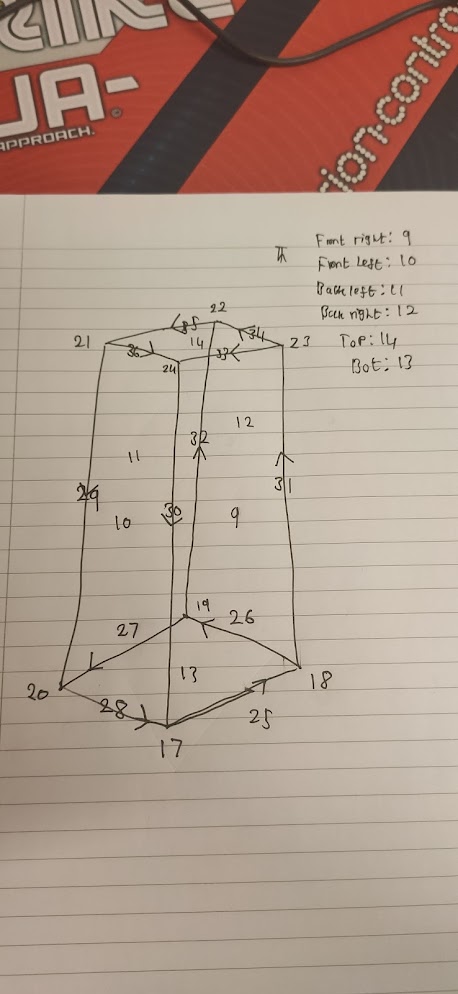 JA-
APPROACH.
ion-contro
Front right: 9
Front left: 10
Back left: 11
Back right: 12
Top: 14
Bot: 13
22
35
34
21
14
23
36
33
24
12
32
11
29
31
30
10
9
19
26
27
13
20
18
28
25
17